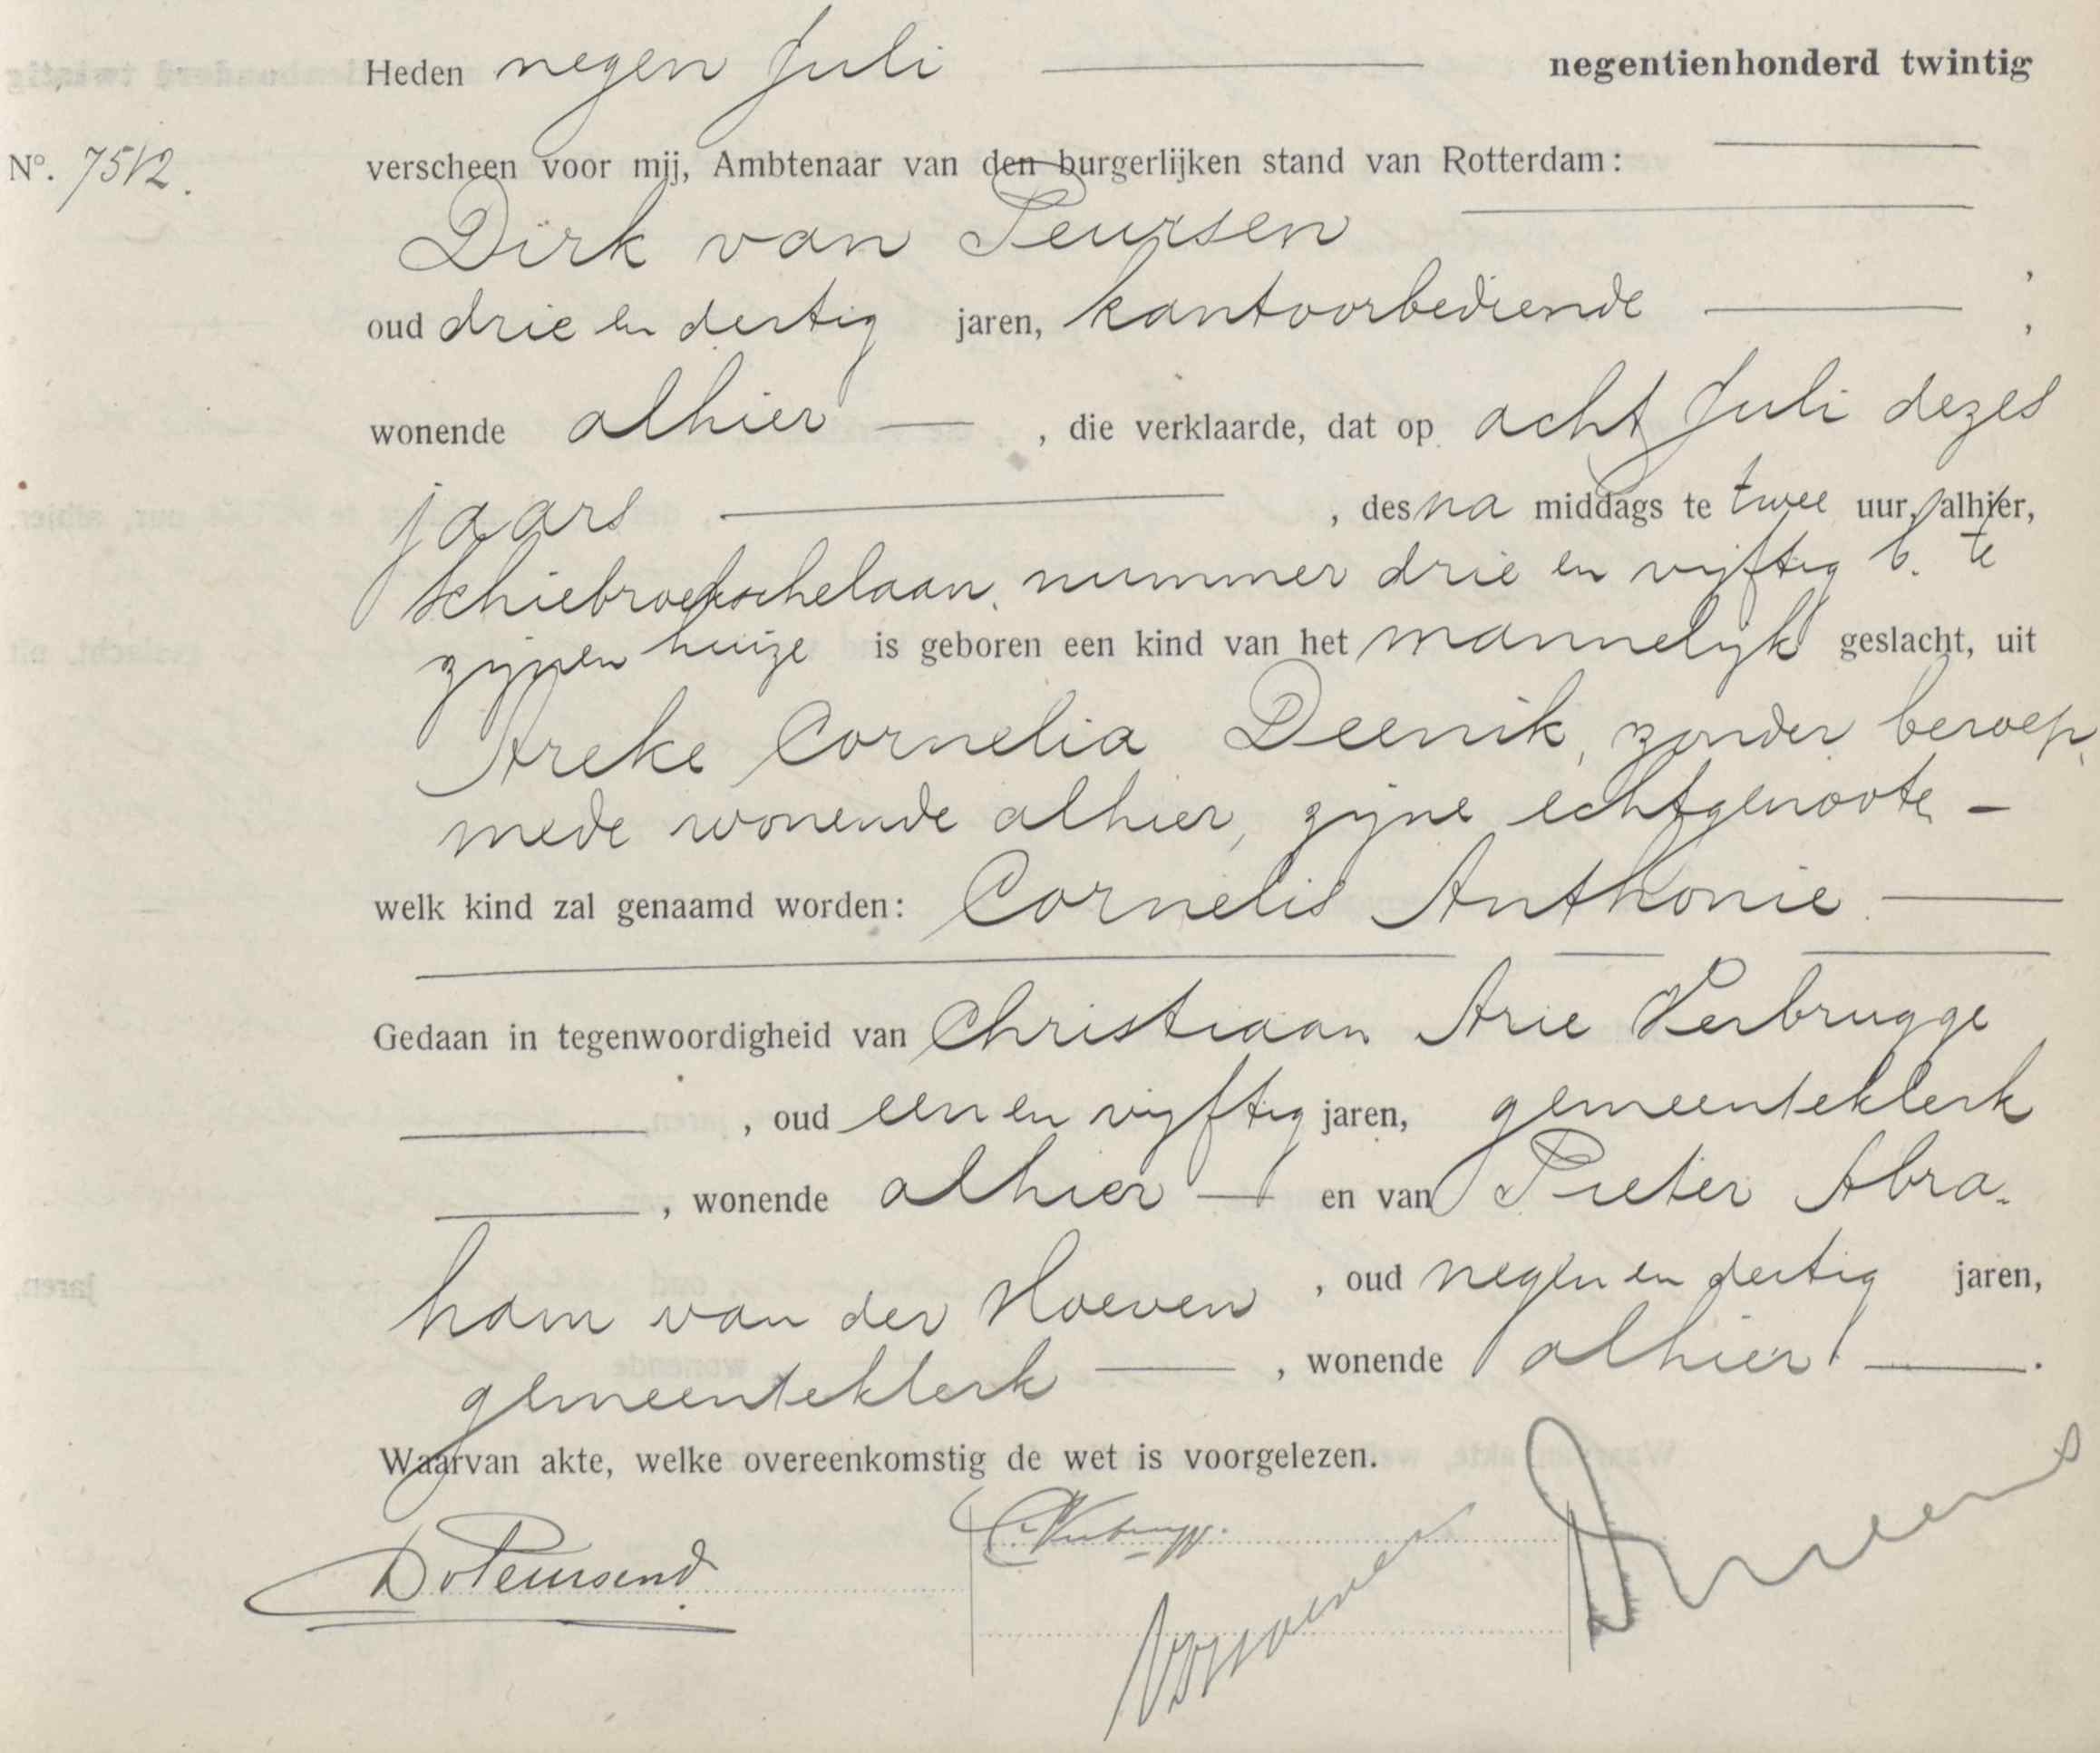 Heden negen Juli negentienhonderd twintig
No. 7512. verscheen voor mij, Ambtenaar van den burgerlijken stand van Rotterdam:
Dirk van Peursen
oud drie en dertig jaren, kantoorbediende ,
wonende alhier , die verklaarde, dat op acht Juli dezes
jaars , des na middags te twee uur, alhier,
Schiebroekschelaan, nummer drie en vijftig b. te
zijnen huize is geboren een kind van het mannelijk geslacht, uit
Areke Cornelia Deenik, zonder beroep,
mede wonende alhier, zijne echtgenoote
welk kind zal genaamd worden: Cornelis Anthonie.
Gedaan in tegenwoordigheid van Christiaan Arie Verbrugge
, oud een en vijftig jaren, gemeenteklerk
, wonende alhier en van Pieter Abra-
ham van der Hoeven , oud negen en dertig jaren,
gemeenteklerk , wonende alhier .
Waarvan akte, welke overeenkomstig de wet is voorgelezen.
D v Peursen
C. Verbrugge.